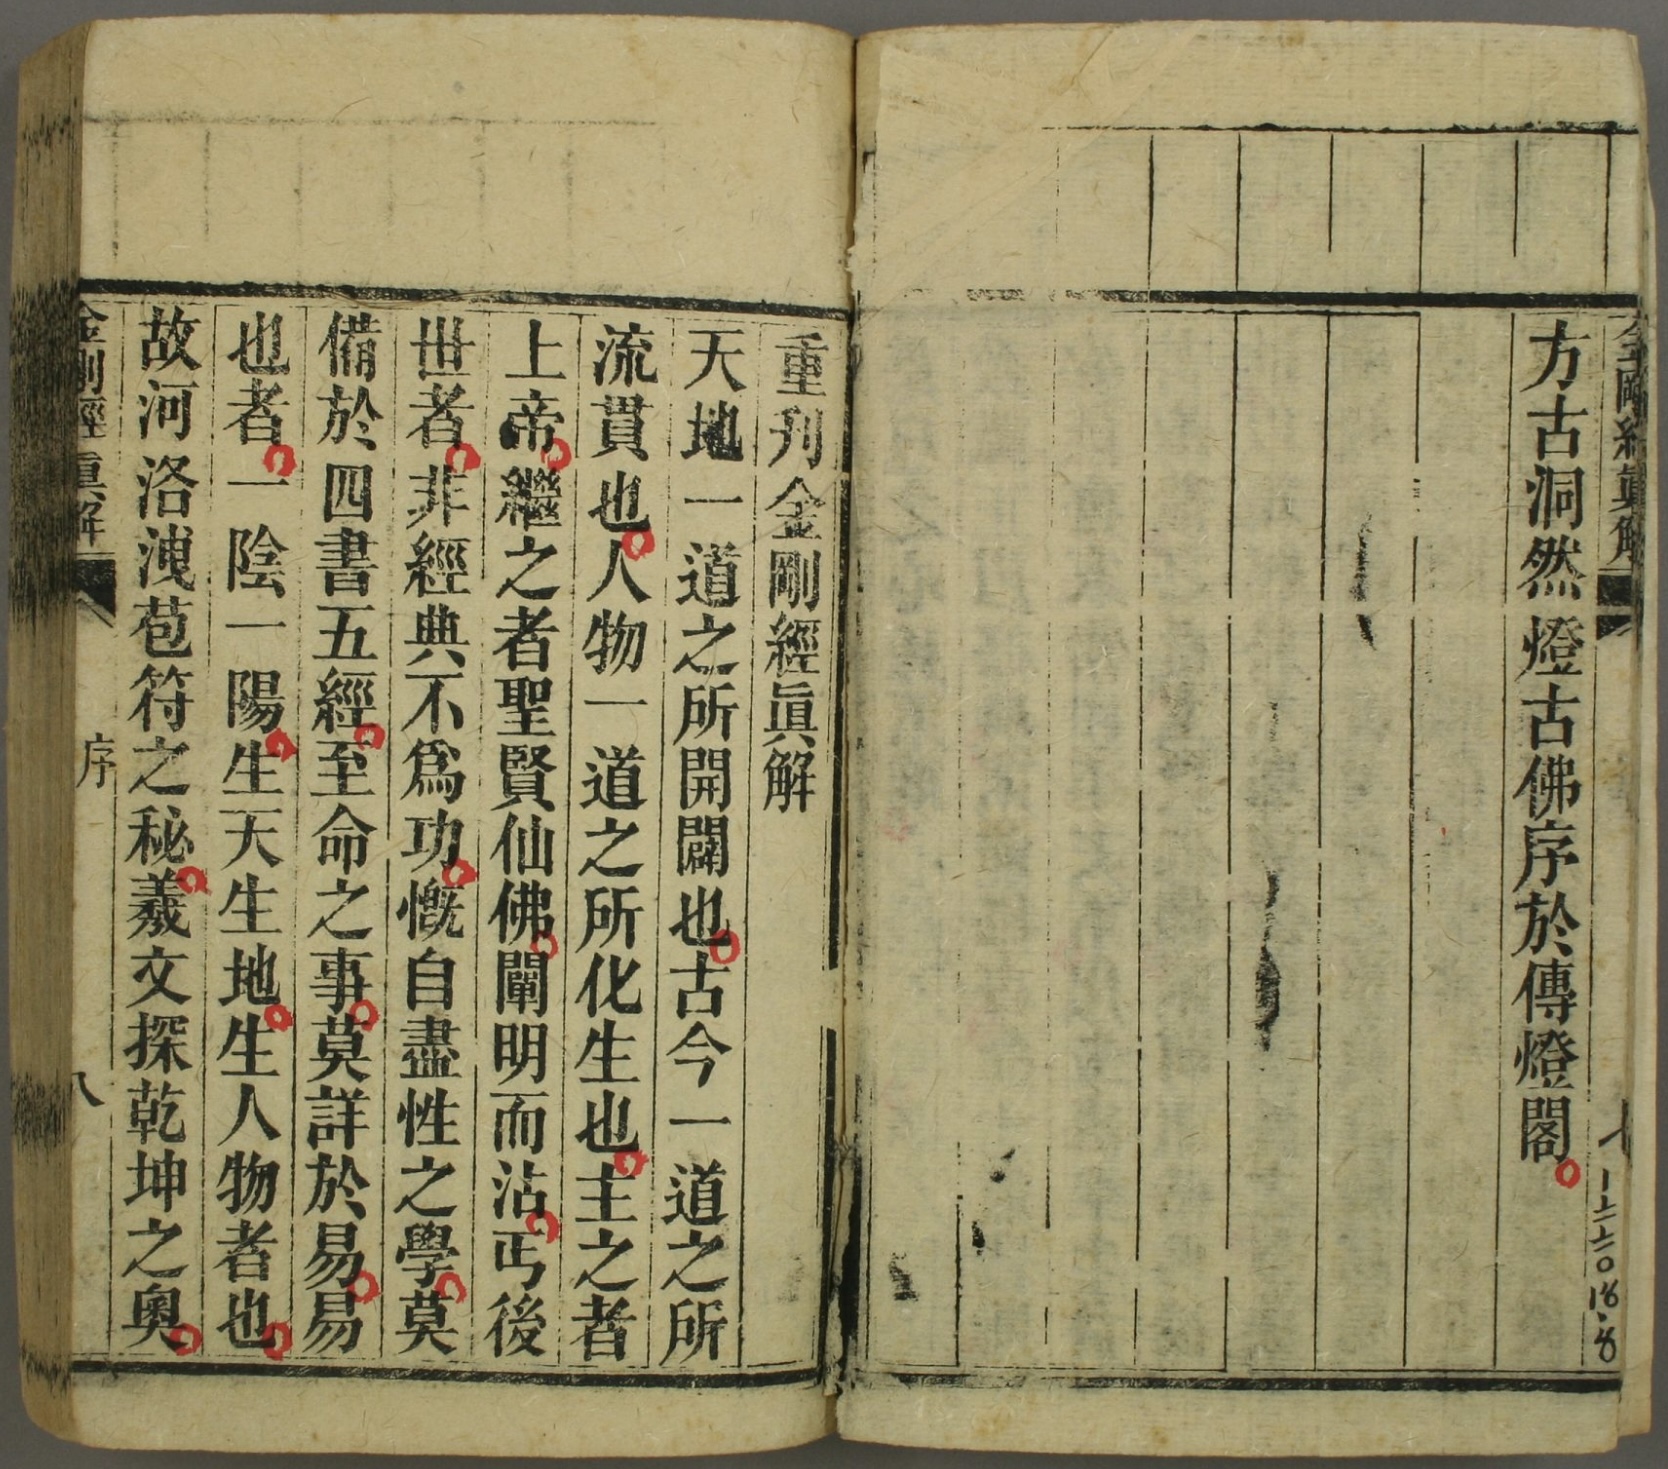 金剛經眞解
七
方古洞然燈古佛序於傳燈閣
重刋金剛經眞解
天地一道之所開闢也古今一道之所
流貫也人物一道之所化生也主之者
上帝繼之者聖賢仙佛闡明而沾丐後
世者非經典不爲功慨自盡性之學莫
備於四書五經至命之事莫詳於易易
也者一陰一陽生天生地生人物者也
故河洛洩苞符之秘羲文探乾坤之奧
金剛經眞解
序
八